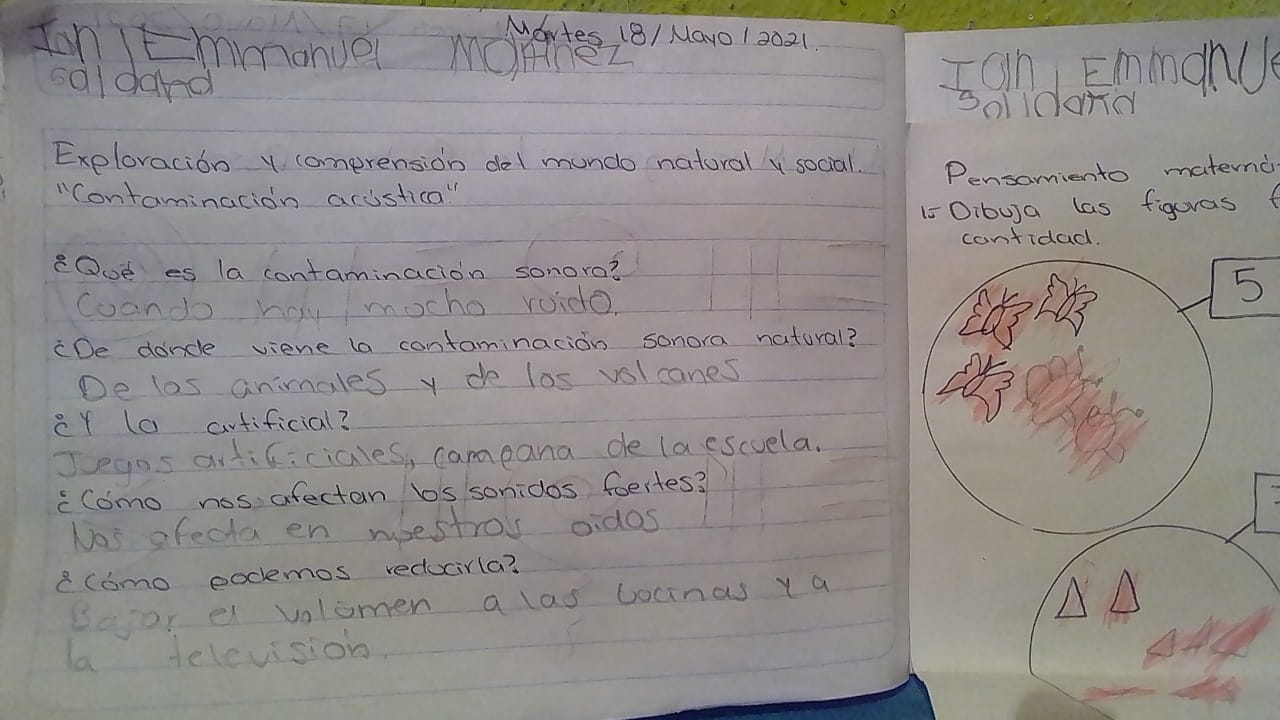 Martes 18/Mayo/2021.
Ian Emmanuel Martinez
Exploración y comprensión del mundo natural y social.
"Contaminación acústica"
¿Qué es la contaminación sonora?
Cuando hay mucho ruido.
¿De dónde viene la contaminación sonora natural?
De los animales y de los volcanes
¿Y la artificial?
Juegos artificiciales, campana de la escuela.
¿Cómo nos afectan los sonidos fuertes?
Nos afecta en nuestros oidos
¿Cómo podemos reducirla?
Bajar el volúmen a las bocinas y a
la televisión.
Ian Emmanue
Solidaria
Pensamiento matemá
1.- Dibuja las figuras f
cantidad.
5